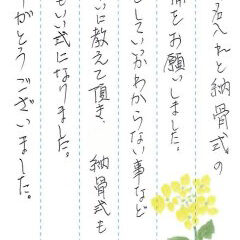 名入れと納骨式の
師をお願いしました。
としていいかわからない事など
いに教えて頂き、納骨式も
もいい式になりました。
がとうございました。